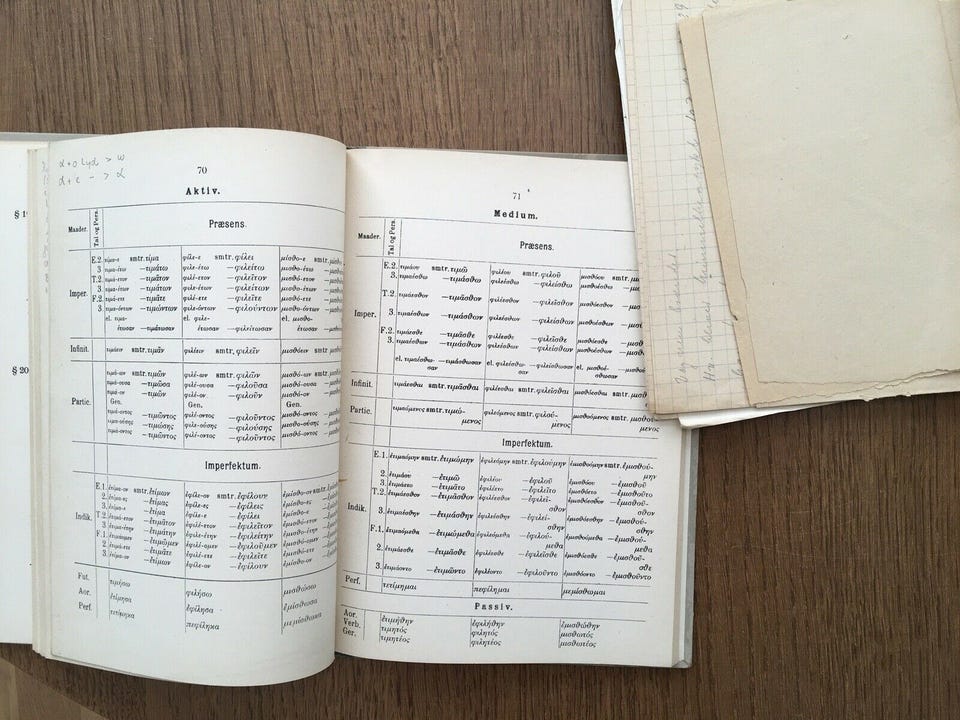 α+ο lyd > ω
α+ε - > α
§ 20
70
Aktiv.
Maader. Tal og Pers. Præsens.
Imper.
E.2. τίμα-ε smtr. τίμα φίλε-ε smtr. φίλει μίσθο-ε smtr.
3. τιμα-έτω —τιμάτω φιλε-έτω —φιλείτω μισθο-έτω
T.2. τιμά-ετον —τιμᾶτον φιλέ-ετον —φιλεῖτον μισθό-ετον
3. τιμα-έτων —τιμάτων φιλε-έτων —φιλείτων μισθο-έτων
F.2. τιμά-ετε —τιμᾶτε φιλέ-ετε —φιλεῖτε μισθό-ετε
3. τιμα-όντων —τιμώντων φιλε-όντων —φιλούντων μισθο-όντων
el. τιμα- el. φιλε- el. μισθο-
έτωσαν —τιμάτωσαν έτωσαν —φιλείτωσαν έτωσαν
Infinit. τιμάειν smtr. τιμᾶν φιλέειν smtr. φιλεῖν μισθόειν smtr.
Partic.
τιμά-ων smtr. τιμῶν φιλέ-ων smtr. φιλῶν μισθό-ων smtr.
τιμά-ουσα —τιμῶσα φιλέ-ουσα —φιλοῦσα μισθό-ουσα
τιμά-ον —τιμῶν φιλέ-ον —φιλοῦν μισθό-ον
Gen. Gen. Gen.
τιμά-οντος —τιμῶντος φιλέ-οντος —φιλοῦντος μισθό-οντος
τιμα-ούσης —τιμώσης φιλε-ούσης —φιλούσης μισθο-ούσης
τιμά-οντος —τιμῶντος φιλέ-οντος —φιλοῦντος μισθό-οντος
Imperfektum.
Indik.
E.1. ἐτίμα-ον smtr. ἐτίμων ἐφίλε-ον smtr. ἐφίλουν ἐμίσθο-ον
2. ἐτίμα-ες —ἐτίμας ἐφίλε-ες —ἐφίλεις ἐμίσθο-ες
3. ἐτίμα-ε —ἐτίμα ἐφίλε-ε —ἐφίλει ἐμίσθο-ε
T.2. ἐτιμά-ετον —ἐτιμᾶτον ἐφιλέ-ετον —ἐφιλεῖτον ἐμισθό-ετον
3. ἐτιμα-έτην —ἐτιμάτην ἐφιλε-έτην —ἐφιλείτην ἐμισθο-έτην
F.1. ἐτιμά-ομεν —ἐτιμῶμεν ἐφιλέ-ομεν —ἐφιλοῦμεν ἐμισθό-ομεν
2. ἐτιμά-ετε —ἐτιμᾶτε ἐφιλέ-ετε —ἐφιλεῖτε ἐμισθό-ετε
3. ἐτίμα-ον —ἐτίμων ἐφίλε-ον —ἐφίλουν ἐμίσθο-ον
Fut. τιμήσω φιλήσω μισθώσω
Aor. ἐτίμησα ἐφίλησα ἐμίσθωσα
Perf. τετίμηκα πεφίληκα μεμίσθωκα
71
Medium.
Maader. Tal og Pers. Præsens.
Imper.
E.2. τιμάου smtr. τιμῶ φιλέου smtr. φιλοῦ μισθόου smtr.
3. τιμαέσθω —τιμάσθω φιλεέσθω —φιλείσθω μισθοέσθω
T.2. τιμάεσθον —τιμᾶσθον φιλέεσθον —φιλεῖσθον μισθόεσθον
3. τιμαέσθων —τιμάσθων φιλεέσθων —φιλείσθων μισθοέσθων
F.2. τιμάεσθε —τιμᾶσθε φιλέεσθε —φιλεῖσθε μισθόεσθε
3. τιμαέσθων —τιμάσθων φιλεέσθων —φιλείσθων μισθοέσθων
el. τιμαέσθω- —τιμάσθωσαν el. φιλεέσθω- —φιλείσθωσαν el. μισθοέ-
σαν σαν σθωσαν
Infinit. τιμάεσθαι smtr. τιμᾶσθαι φιλέεσθαι smtr. φιλεῖσθαι μισθόεσθαι smtr.
Partic. τιμαόμενος smtr. τιμώ- φιλεόμενος smtr. φιλού- μισθοόμενος smtr.
μενος μενος μενος
Imperfektum.
Indik.
E.1. ἐτιμαόμην smtr. ἐτιμώμην ἐφιλεόμην smtr. ἐφιλούμην ἐμισθοόμην smtr. ἐμισθού-
μην
2. ἐτιμάου —ἐτιμῶ ἐφιλέου —ἐφιλοῦ ἐμισθόου —ἐμισθοῦ
3. ἐτιμάετο —ἐτιμᾶτο ἐφιλέετο —ἐφιλεῖτο ἐμισθόετο —ἐμισθοῦτο
T.2. ἐτιμάεσθον —ἐτιμᾶσθον ἐφιλέεσθον —ἐφιλεῖ- ἐμισθόεσθον —ἐμισθοῦ-
σθον σθον
3. ἐτιμαέσθην —ἐτιμάσθην ἐφιλεέσθην —ἐφιλεί- ἐμισθοέσθην —ἐμισθού-
σθην σθην
F.1. ἐτιμαόμεθα —ἐτιμώμεθα ἐφιλεόμεθα —ἐφιλού- ἐμισθοόμεθα —ἐμισθού-
μεθα μεθα
2. ἐτιμάεσθε —ἐτιμᾶσθε ἐφιλέεσθε —ἐφιλεῖσθε ἐμισθόεσθε —ἐμισθοῦ-
σθε
3. ἐτιμάοντο —ἐτιμῶντο ἐφιλέοντο —ἐφιλοῦντο ἐμισθόοντο —ἐμισθοῦντο
Perf. τετίμημαι πεφίλημαι μεμίσθωμαι
Passiv.
Aor. ἐτιμήθην ἐφιλήθην ἐμισθώθην
Verb. τιμητός φιλητός μισθωτός
Ger. τιμητέος φιλητέος μισθωτέος